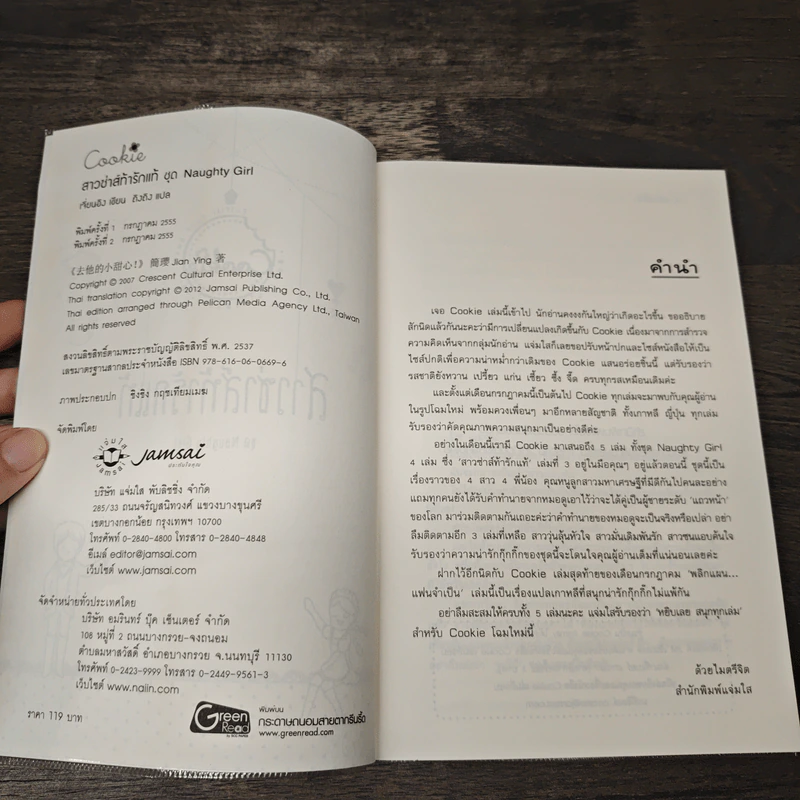 Cookie
สาวซ่าส์ท้ารักแท้ ชุด Naughty Girl
เจี่ยนอิง เขียน ถิงถิง แปล
พิมพ์ครั้งที่ 1 กรกฎาคม 2555
พิมพ์ครั้งที่ 2 กรกฎาคม 2555
《去他的小甜心!》 簡瓔 Jian Ying 著
Copyright © 2007 Crescent Cultural Enterprise Ltd.
Thai translation copyright © 2012 Jamsai Publishing Co., Ltd.
Thai edition arranged through Pelican Media Agency Ltd., Taiwan
All rights reserved
สงวนลิขสิทธิ์ตามพระราชบัญญัติลิขสิทธิ์ พ.ศ. 2537
เลขมาตรฐานสากลประจำหนังสือ ISBN 978-616-06-0669-6
ภาพประกอบปก ชิงชิง กฤชเทียมเมฆ
จัดพิมพ์โดย
แจ่มใส
Jamsai
Jamsai
ประทับใจคุณ
บริษัท แจ่มใส พับลิชชิ่ง จำกัด
285/33 ถนนจรัญสนิทวงศ์ แขวงบางขุนศรี
เขตบางกอกน้อย กรุงเทพฯ 10700
โทรศัพท์ 0-2840-4800 โทรสาร 0-2840-4848
อีเมล์ editor@jamsai.com
เว็บไซต์ www.jamsai.com
จัดจำหน่ายทั่วประเทศโดย
บริษัท อมรินทร์ บุ๊ค เซ็นเตอร์ จำกัด
108 หมู่ที่ 2 ถนนบางกรวย-จงถนอม
ตำบลมหาสวัสดิ์ อำเภอบางกรวย จ.นนทบุรี 11130
โทรศัพท์ 0-2423-9999 โทรสาร 0-2449-9561-3
เว็บไซต์ www.naiin.com
ราคา 119 บาท
Green
Read
พิมพ์บน
กระดาษถนอมสายตากรีนรี้ด
www.greenread.com
คำนำ
เจอ Cookie เล่มนี้เข้าไป นักอ่านคงงงกันใหญ่ว่าเกิดอะไรขึ้น ขออธิบาย
สักนิดแล้วกันนะคะว่ามีการเปลี่ยนแปลงเกิดขึ้นกับ Cookie เนื่องมาจากการสำรวจ
ความคิดเห็นจากกลุ่มนักอ่าน แจ่มใสก็เลยขอปรับหน้าปกและไซส์หนังสือให้เป็น
ไซส์ปกติเพื่อความน่าหม่ำกว่าเดิมของ Cookie แสนอร่อยชิ้นนี้ แต่รับรองว่า
รสชาติยังหวาน เปรี้ยว แก่น เซี้ยว ซึ้ง จี๊ด ครบทุกรสเหมือนเดิมค่ะ
และตั้งแต่เดือนกรกฎาคมนี้เป็นต้นไป Cookie ทุกเล่มจะมาพบกับคุณผู้อ่าน
ในรูปโฉมใหม่ พร้อมควงเพื่อนๆ มาอีกหลายสัญชาติ ทั้งเกาหลี ญี่ปุ่น ทุกเล่ม
รับรองว่าคัดคุณภาพความสนุกมาเป็นอย่างดีค่ะ
อย่างในเดือนนี้เรามี Cookie มาเสนอถึง 5 เล่ม ทั้งชุด Naughty Girl
4 เล่ม ซึ่ง ‘สาวซ่าส์ท้ารักแท้’ เล่มที่ 3 อยู่ในมือคุณๆ อยู่แล้วตอนนี้ ชุดนี้เป็น
เรื่องราวของ 4 สาว 4 พี่น้อง คุณหนูลูกสาวมหาเศรษฐีที่มีดีกันไปคนละอย่าง
แถมทุกคนยังได้รับคำทำนายจากหมอดูเอาไว้ว่าจะได้คู่เป็นผู้ชายระดับ ‘แถวหน้า’
ของโลก มาร่วมติดตามกันเถอะค่ะว่าคำทำนายของหมอดูจะเป็นจริงหรือเปล่า อย่า
ลืมติดตามอีก 3 เล่มที่เหลือ สาววุ่นลุ้นหัวใจ สาวมั่นเดิมพันรัก สาวซนแอบค้นใจ
รับรองว่าความน่ารักกุ๊กกิ๊กของชุดนี้จะโดนใจคุณผู้อ่านเต็มที่แน่นอนเลยค่ะ
ฝากไว้อีกนิดกับ Cookie เล่มสุดท้ายของเดือนกรกฎาคม ‘พลิกแผน...
แฟนจำเป็น’ เล่มนี้เป็นเรื่องแปลเกาหลีที่สนุกน่ารักกุ๊กกิ๊กไม่แพ้กัน
อย่าลืมสะสมให้ครบทั้ง 5 เล่มนะคะ แจ่มใสรับรองว่า ‘หยิบเลย สนุกทุกเล่ม’
สำหรับ Cookie โฉมใหม่นี้
ด้วยไมตรีจิต
สำนักพิมพ์แจ่มใส